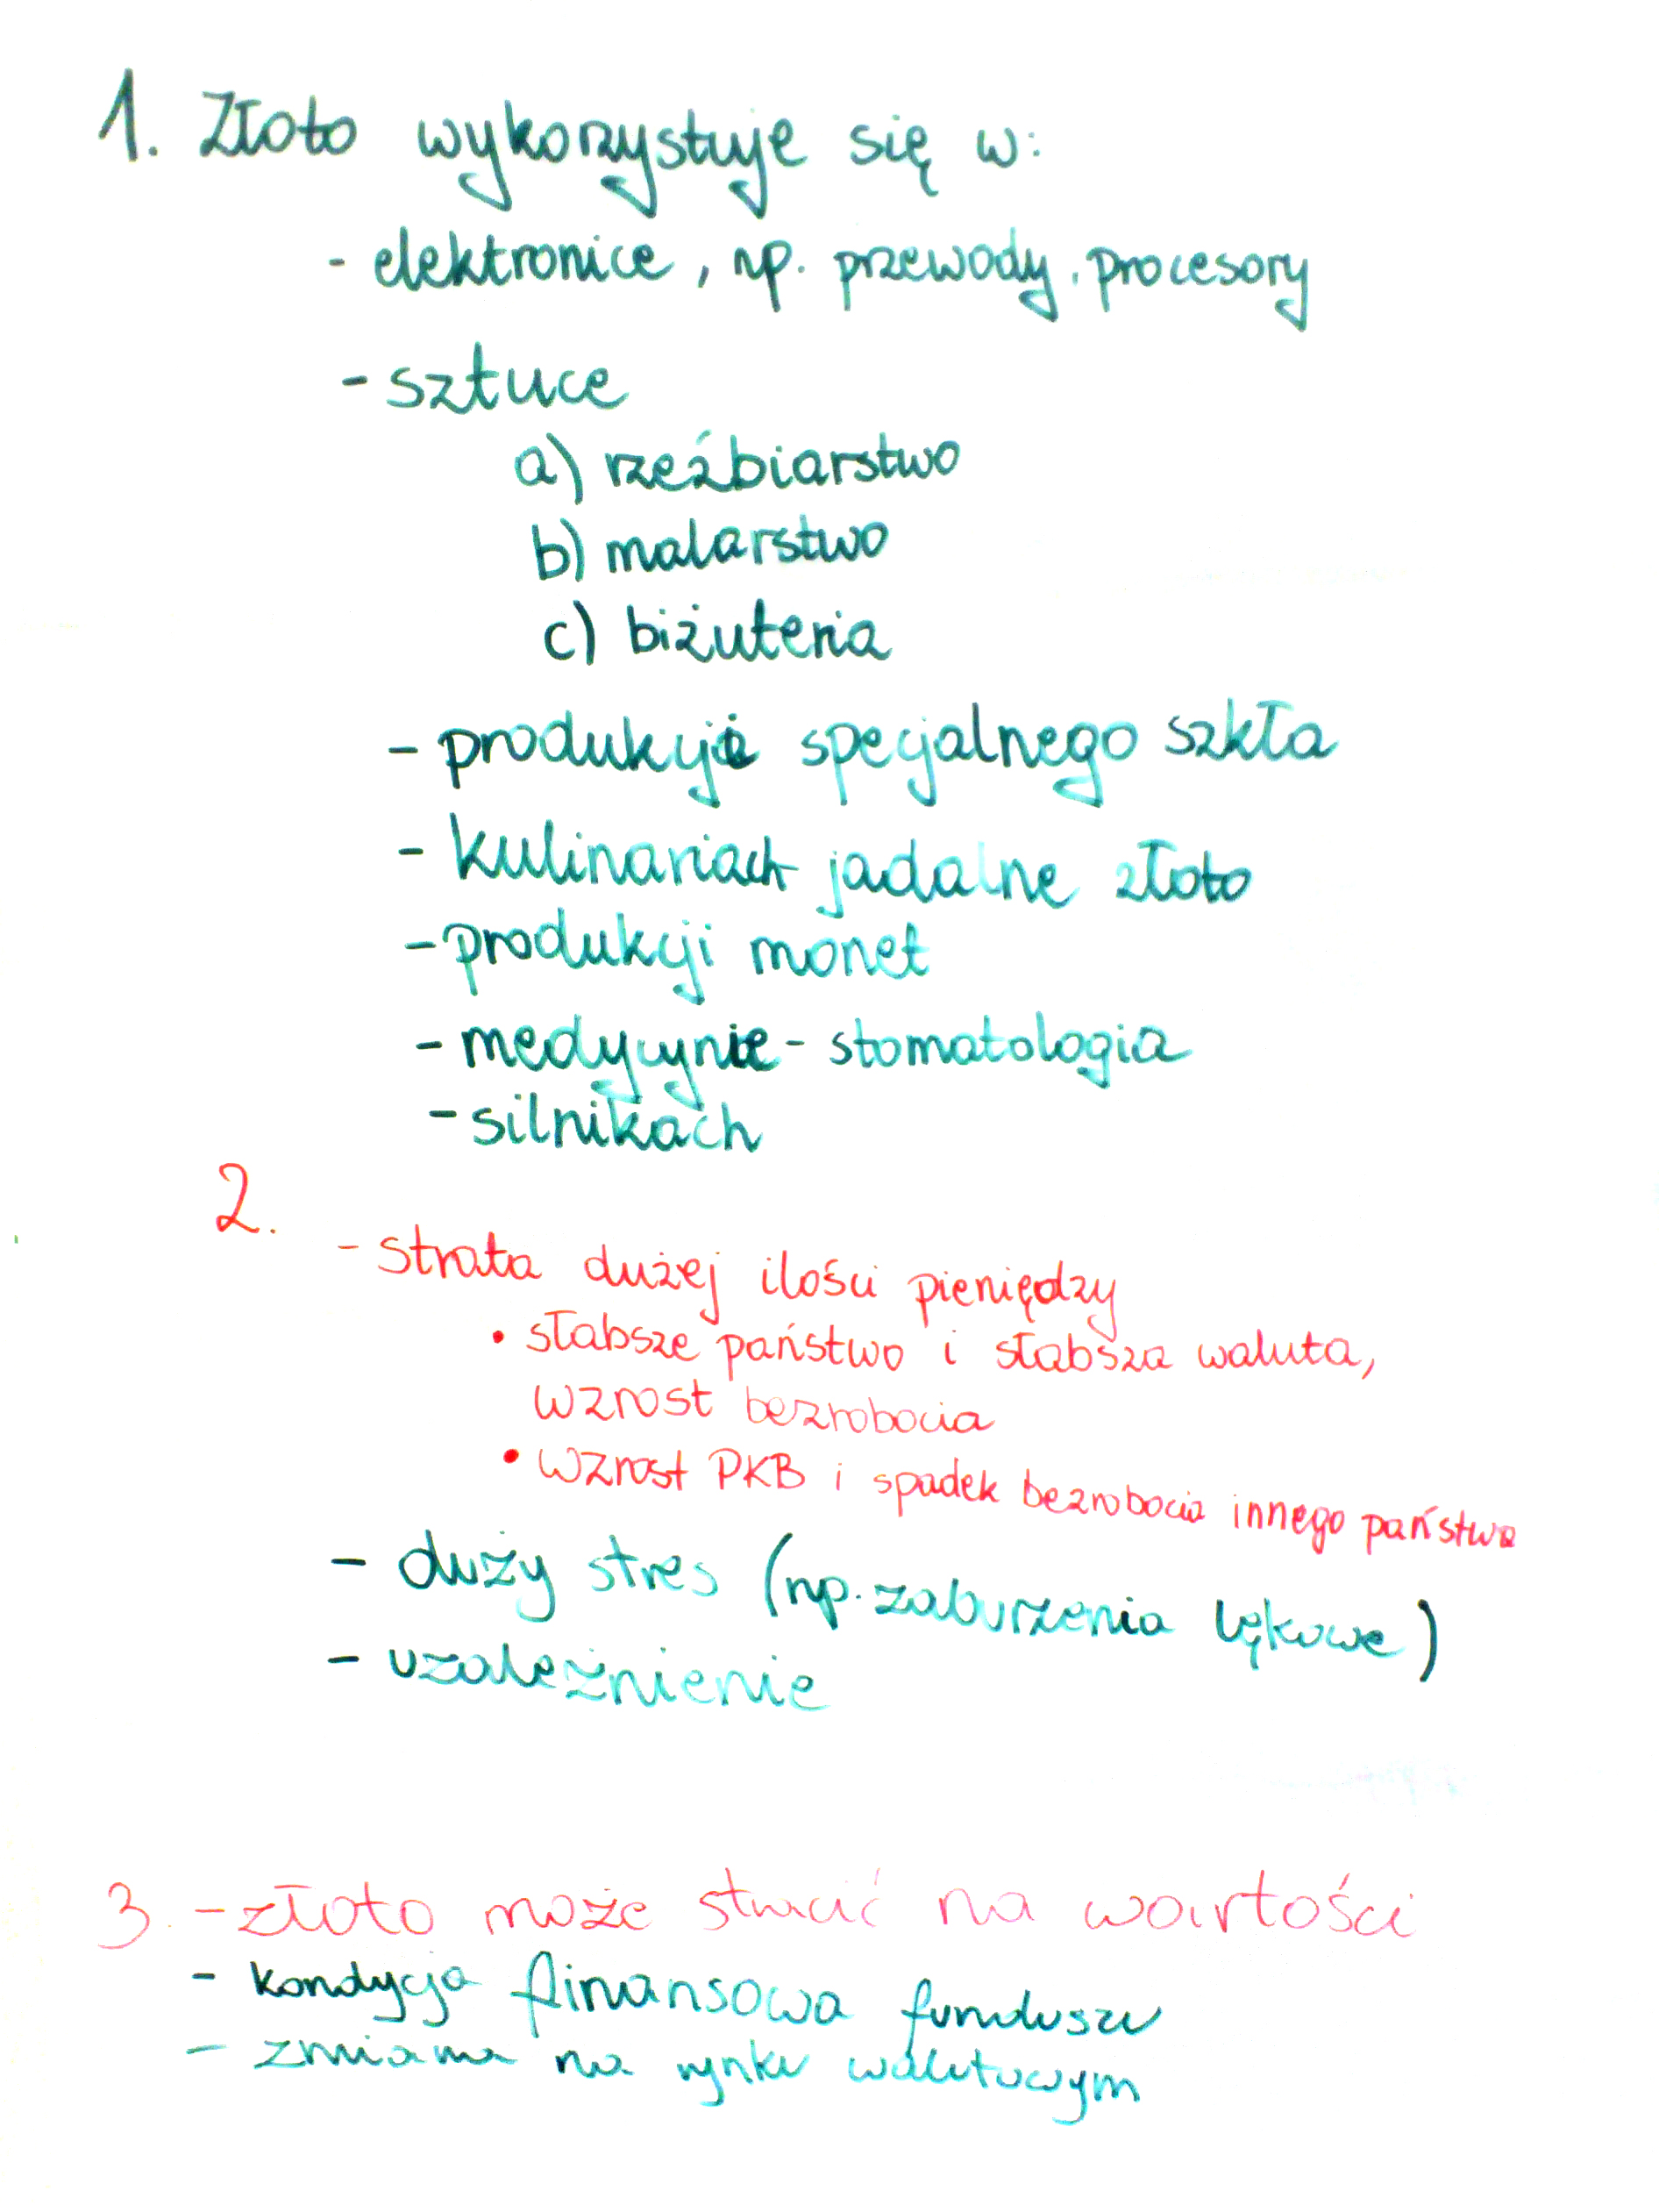 1. Złoto wykorzystuje się w:
- elektronice, np. przewody, procesory
- sztuce
a) rzeźbiarstwo
b) malarstwo
c) biżuteria
- produkcji specjalnego szkła
- kulinariach jadalne złoto
- produkcji monet
- medycynie - stomatologia
- silnikach
2.
- strata dużej ilości pieniędzy
• słabsze państwo i słabsza waluta,
wzrost bezrobocia
• wzrost PKB i spadek bezrobocia innego państwa
- duży stres (np. zaburzenia lękowe)
- uzależnienie
3. - złoto może stracić na wartości
- kondycja finansowa funduszu
- zmiana na rynku walutowym